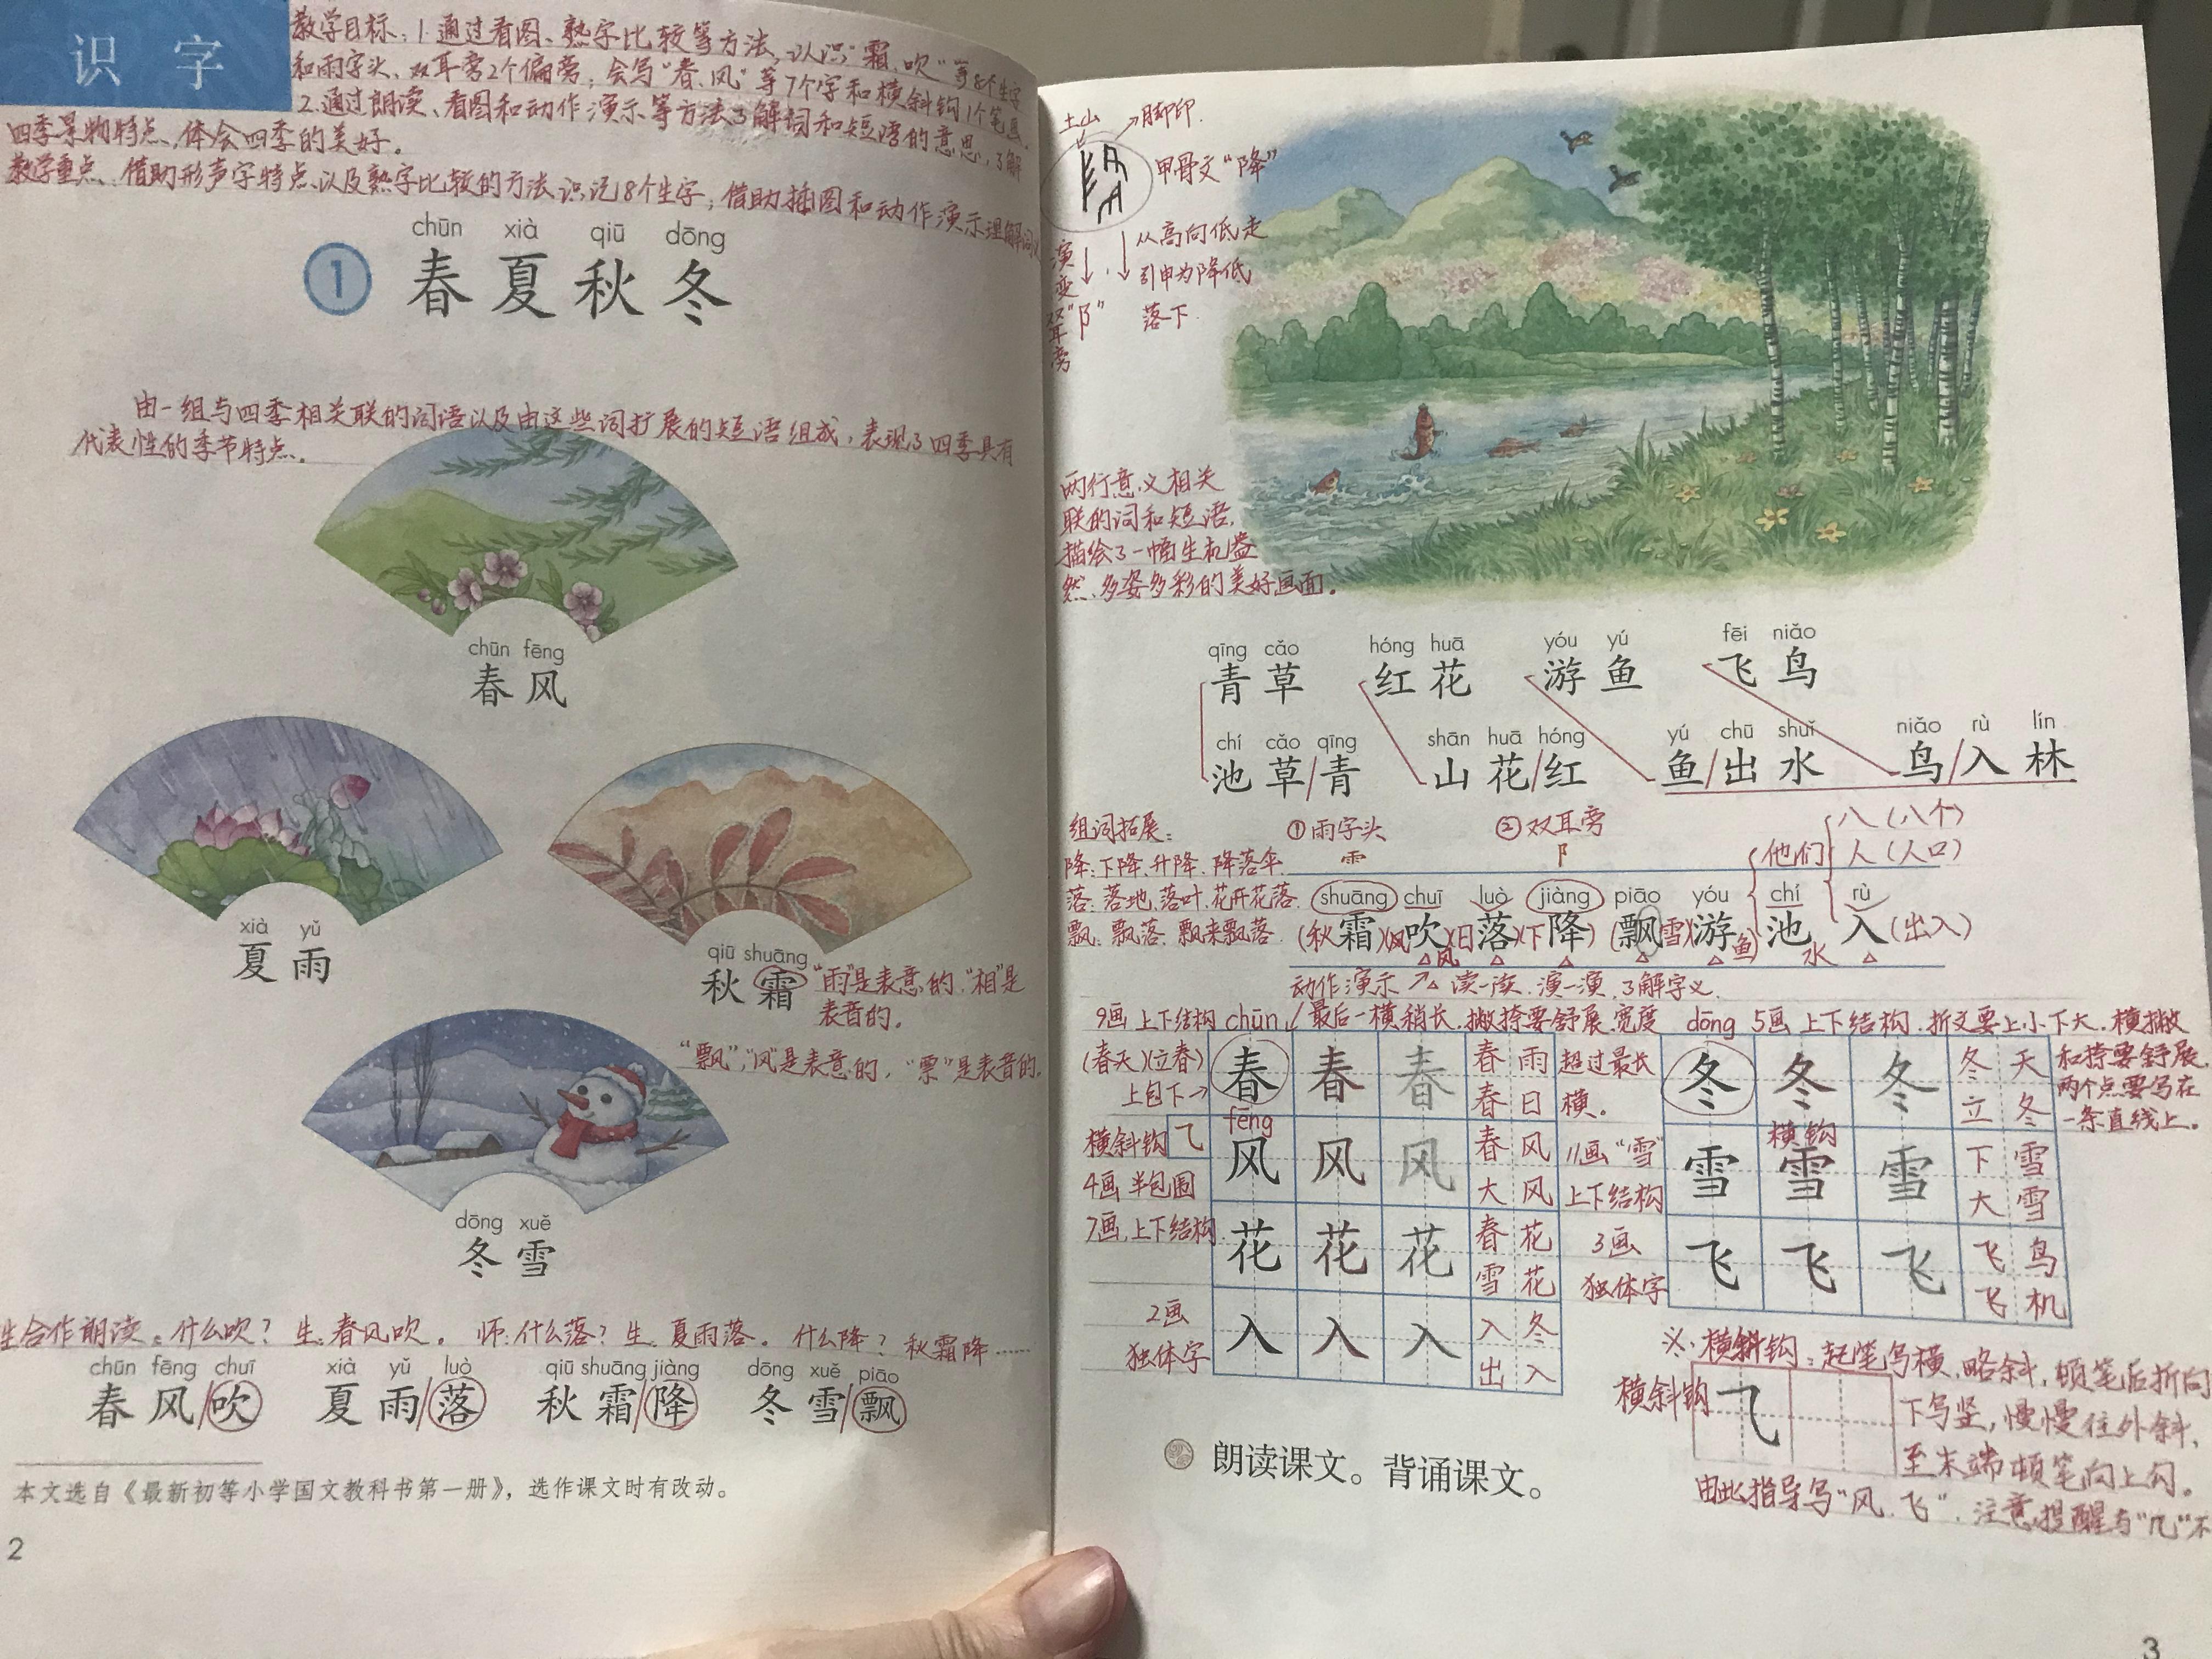 识字
教学目标：1.通过看图、熟字比较等方法，认识“霜、吹”等8个生字
和雨字头、双耳旁2个偏旁；会写“春、风”等7个字和横斜钩1个笔画。
2.通过朗读、看图和动作演示等方法了解词和短语的意思，了解
四季景物特点，体会四季的美好。
教学重点：借助形声字特点以及熟字比较的方法识记8个生字；借助插图和动作演示理解词义
chūn xià qiū dōng
1 春夏秋冬
由一组与四季相关联的词语以及由这些词扩展的短语组成，表现了四季具有
代表性的季节特点。
chūn fēng
春风
xià yǔ
夏雨
qiū shuāng
秋霜
“雨”是表意的，“相”是
表音的。
“飘”，“风”是表意的，“票”是表音的。
dōng xuě
冬雪
生合作朗读：什么吹？ 生：春风吹。 师：什么落？ 生：夏雨落。 什么降？ 秋霜降……
chūn fēng chuī xià yǔ luò qiū shuāng jiàng dōng xuě piāo
春风/吹 夏雨/落 秋霜/降 冬雪/飘
本文选自《最新初等小学国文教科书第一册》，选作课文时有改动。
2
土山 脚印
甲骨文“降”
从高向低走
引申为降低
落下
演变
“阝”
双耳旁
两行意义相关
联的词和短语，
描绘了一幅生机盎
然、多姿多彩的美好画面。
qīng cǎo hóng huā yóu yú fēi niǎo
青草 红花 游鱼 飞鸟
chí cǎo qīng shān huā hóng yú chū shuǐ niǎo rù lín
池草/青 山花/红 鱼/出水 鸟/入林
组词拓展： ①雨字头 ②双耳旁 八（八个）
降：下降、升降、降落伞 ⻗ 阝 他们 人（人口）
落：落地、落叶、花开花落 shuāng chuī luò jiàng piāo yóu chí rù
飘：飘落、飘来飘落 (秋霜)(风吹)(日落)(下降)(飘雪)(游鱼) 池水 入(出入)
风
动作演示 ↗△ 读一读，演一演，了解字义
9画 上下结构 chūn 最后一横稍长，撇捺要舒展，宽度 dōng 5画 上下结构，折文要上小下大，横撇
(春天)(立春) 春 春 春 春雨 超过最长 冬 冬 冬 冬天 和捺要舒展，
上包下→ 春日 横。 立冬 两个点要写在
一条直线上。
fēng 横钩
横斜钩 ⺄ 风 风 风 春风 11画“雪” 雪 雪 雪 下雪
4画 半包围 大风 上下结构 大雪
7画，上下结构 花 花 花 春花 3画 飞 飞 飞 飞鸟
雪花 独体字 飞机
2画 入 入 入 入冬
独体字 出入
※横斜钩：起笔写横，略斜，顿笔后折向
横斜钩 ⺄ 下写竖，慢慢往外斜，
至末端顿笔向上勾。
由此指导写“风、飞”，注意提醒与“几”不
朗读课文。背诵课文。
3